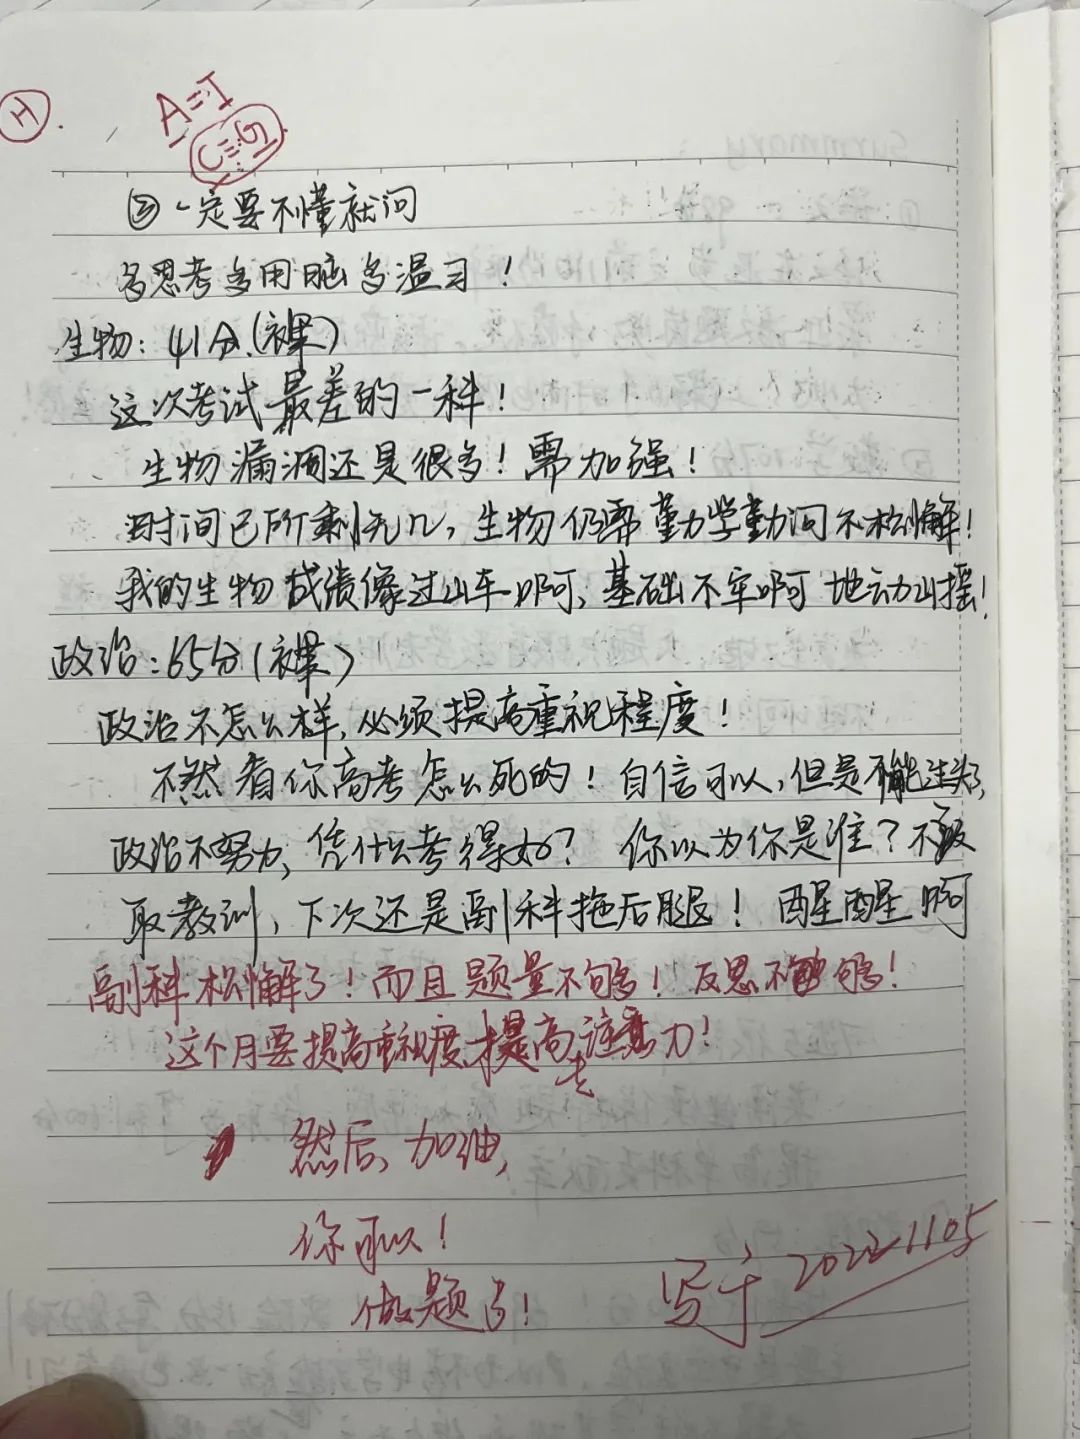 H
A=T
C≡G
③一定要不懂就问
多思考多用脑多温习！
生物：41分.(裸)
这次考试最差的一科！
生物漏洞还是很多！需加强！
时间已所剩无几，生物仍需勤学勤问不松懈！
我的生物成绩像过山车啊，基础不牢啊地动山摇！
政治：65分(裸)
政治不怎么样，必须提高重视程度！
不然看你高考怎么死的！自信可以，但是不能过头，
政治不努力，凭什么考得好？你以为你是谁？不汲
取教训，下次还是副科拖后腿！醒醒啊
副科松懈了！而且题量不够！反思不够！
这个月要提高重视度提高注意力！
然后，加油，
你可以！
做题了！
写于20221105